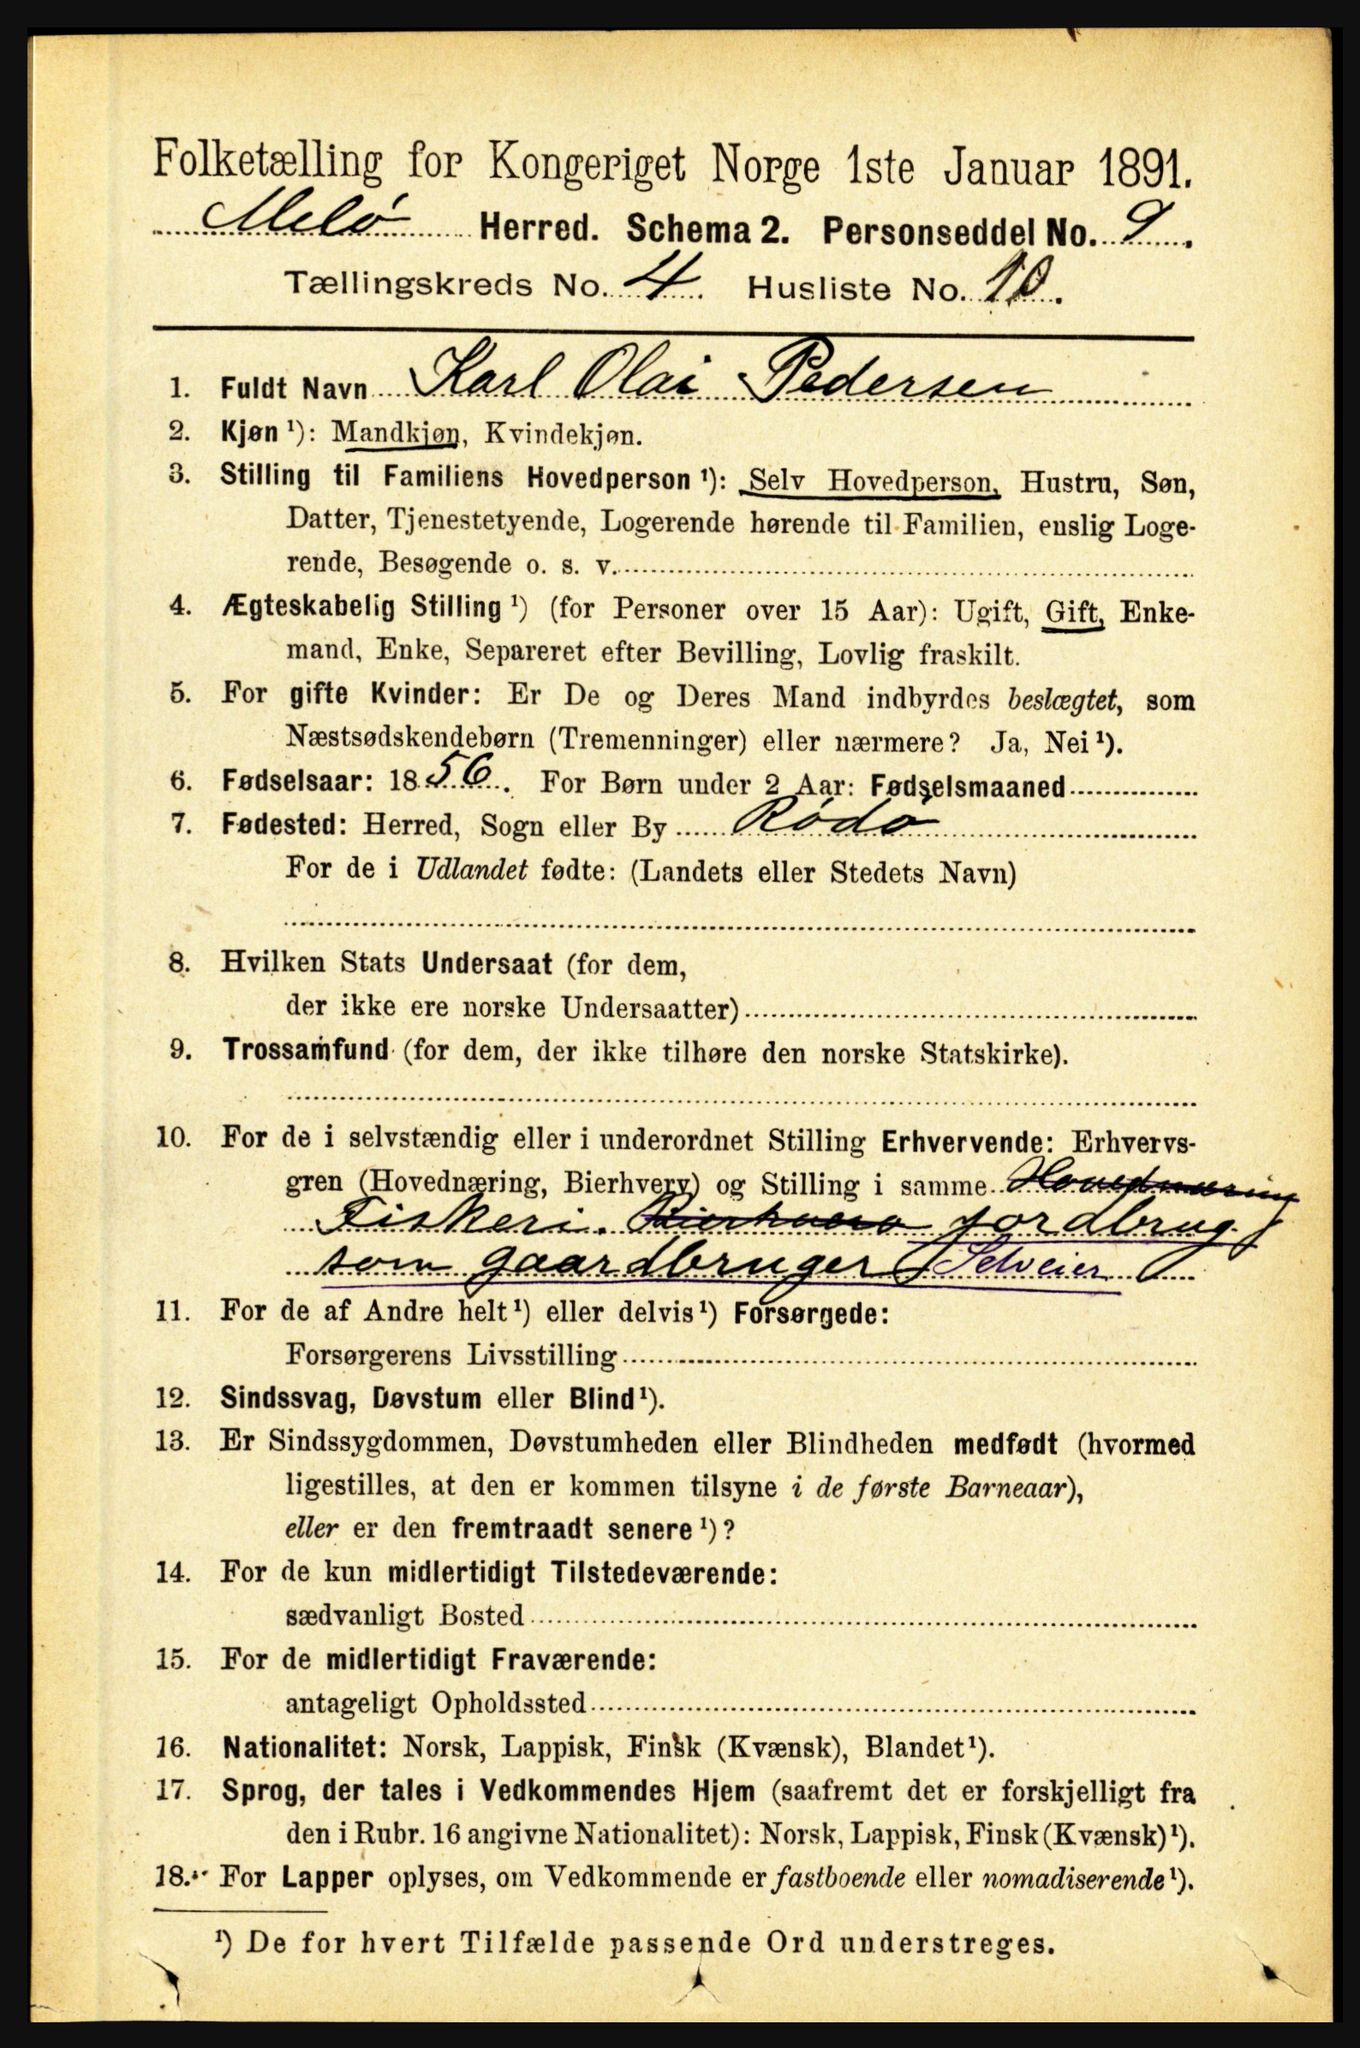 Folketælling for Kongeriget Norge 1ste Januar 1891.
Melö Herred. Schema 2. Personseddel No. 9.
Tællingskreds No. 4. Husliste No. 10.
1. Fuldt Navn Karl Olai Pedersen
2. Kjøn ¹): Mandkjøn, Kvindekjøn.
3. Stilling til Familiens Hovedperson ¹): Selv Hovedperson, Hustru, Søn,
Datter, Tjenestetyende, Logerende hørende til Familien, enslig Loge-
rende, Besøgende o. s. v.
4. Ægteskabelig Stilling ¹) (for Personer over 15 Aar): Ugift, Gift, Enke-
mand, Enke, Separeret efter Bevilling, Lovlig fraskilt.
5. For gifte Kvinder: Er De og Deres Mand indbyrdes beslægtet, som
Næstsødskendebørn (Tremenninger) eller nærmere? Ja, Nei ¹).
6. Fødselsaar: 1856. For Børn under 2 Aar: Fødselsmaaned
7. Fødested: Herred, Sogn eller By Rödö
For de i Udlandet fødte: (Landets eller Stedets Navn)
8. Hvilken Stats Undersaat (for dem,
der ikke ere norske Undersaatter)
9. Trossamfund (for dem, der ikke tilhøre den norske Statskirke).
10. For de i selvstændig eller i underordnet Stilling Erhvervende: Erhvervs-
gren (Hovednæring, Bierhverv) og Stilling i samme Hovednæring
Fiskeri. Bierhverv jordbrug
som gaardbruger Selveier
11. For de af Andre helt ¹) eller delvis ¹) Forsørgede:
Forsørgerens Livsstilling
12. Sindssvag, Døvstum eller Blind ¹).
13. Er Sindssygdommen, Døvstumheden eller Blindheden medfødt (hvormed
ligestilles, at den er kommen tilsyne i de første Barneaar),
eller er den fremtraadt senere ¹)?
14. For de kun midlertidigt Tilstedeværende:
sædvanligt Bosted
15. For de midlertidigt Fraværende:
antageligt Opholdssted
16. Nationalitet: Norsk, Lappisk, Finsk (Kvænsk), Blandet ¹).
17. Sprog, der tales i Vedkommendes Hjem (saafremt det er forskjelligt fra
den i Rubr. 16 angivne Nationalitet): Norsk, Lappisk, Finsk (Kvænsk) ¹).
18. For Lapper oplyses, om Vedkommende er fastboende eller nomadiserende ¹).
¹) De for hvert Tilfælde passende Ord understreges.